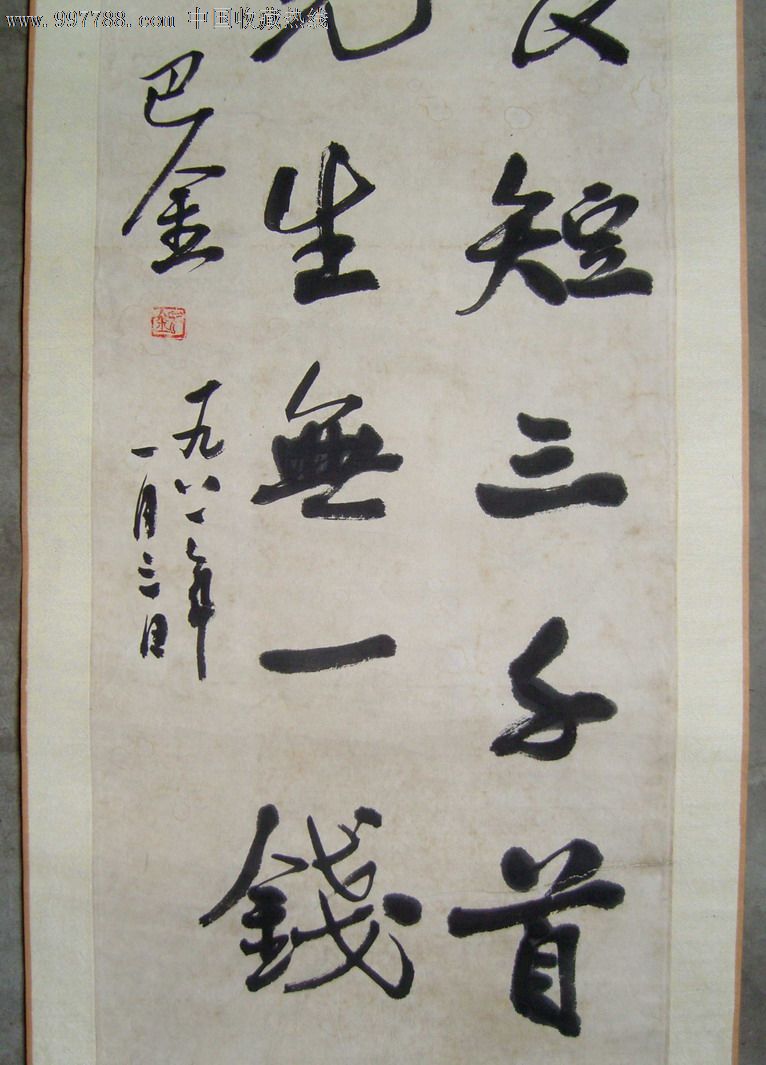 www.997788.com 中国收藏热线
短三千首
生無一錢
巴金
一九八一年
一月三日